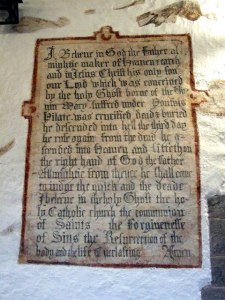 I Beleue in God the Father al
mightie maker of Heauen & earth
and in Jesus Christ his only son
our Lord which was conceiued
by the holy Ghost borne of the Vir
gin Mary suffred under Pontius
Pilate was crucified dead & buried
he descended into hell the third day
he rose again from the dead he a
scended into Heauen and sitteth on
the right hand of God the father
Allmightie from thence he shall come
to iudge the quick and the deade
I beleue in the holy Ghost the ho
ly Catholic church the communion
of Saints the forgiuenesse
of Sins the Resurrection of the
body and the life Euerlasting Amen